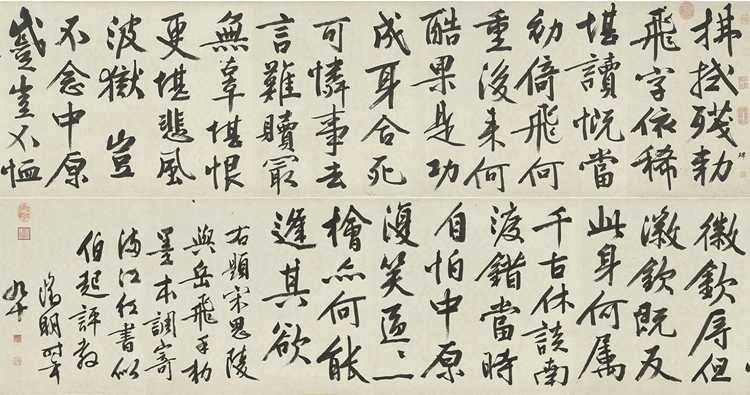 拂拭殘勑
飛字依稀
堪讀慨當
初倚飛何
重後來何
酷果是功
成身合死
可憐事去
言難贖最
無辜堪恨
更堪悲風
波獄 豈
不念中原
蹙豈不恤
徽欽辱但
徽欽既反
此身何屬
千古休談南
渡錯當時
自怕中原
復笑區〻
檜亦何能
逢其欲
右題宋思陵
與岳飛手勑
墨本調寄
滿江紅書似
伯起評教
徵明時年
九十